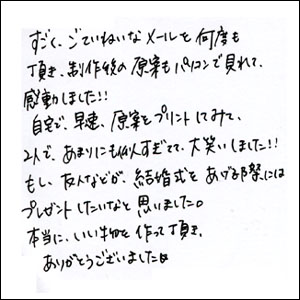 すごく、ごていねいなメールを何度も
頂き、制作後の原案もパソコンで見れて、
感動しました!!
自宅で、早速、原案をプリントしてみて、
2人で、あまりにも似すぎてて、大笑いしました!!
もし、友人などが、結婚式をあげる際には
プレゼントしたいなと思いました。
本当に、いい物を作って頂き、
ありがとうございました